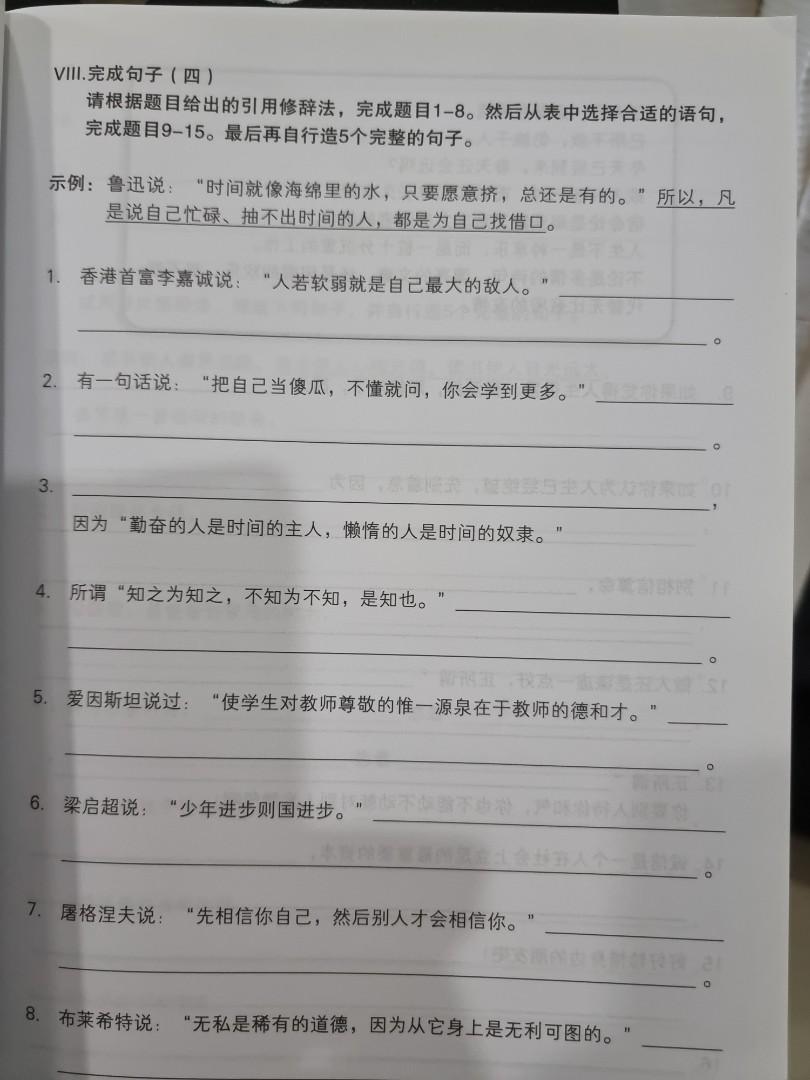 VIII.完成句子（四）
请根据题目给出的引用修辞法，完成题目1–8。然后从表中选择合适的语句，
完成题目9–15。最后再自行造5个完整的句子。
示例：鲁迅说：“时间就像海绵里的水，只要愿意挤，总还是有的。”所以，凡
是说自己忙碌、抽不出时间的人，都是为自己找借口。
1. 香港首富李嘉诚说：“人若软弱就是自己最大的敌人。”
。
2. 有一句话说：“把自己当傻瓜，不懂就问，你会学到更多。”
。
3. ，
因为“勤奋的人是时间的主人，懒惰的人是时间的奴隶。”
4. 所谓“知之为知之，不知为不知，是知也。”
。
5. 爱因斯坦说过：“使学生对教师尊敬的惟一源泉在于教师的德和才。”
。
6. 梁启超说：“少年进步则国进步。”
。
7. 屠格涅夫说：“先相信你自己，然后别人才会相信你。”
。
8. 布莱希特说：“无私是稀有的道德，因为从它身上是无利可图的。”